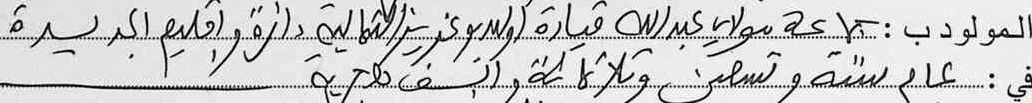 المولود ب: جماعة مولاي عبد الله قيادة أولاد بوعزيز الشمالية دائرة وإقليم الجديدة
في: عام ستة وتسعين وثلاثمائة وألف هجرية